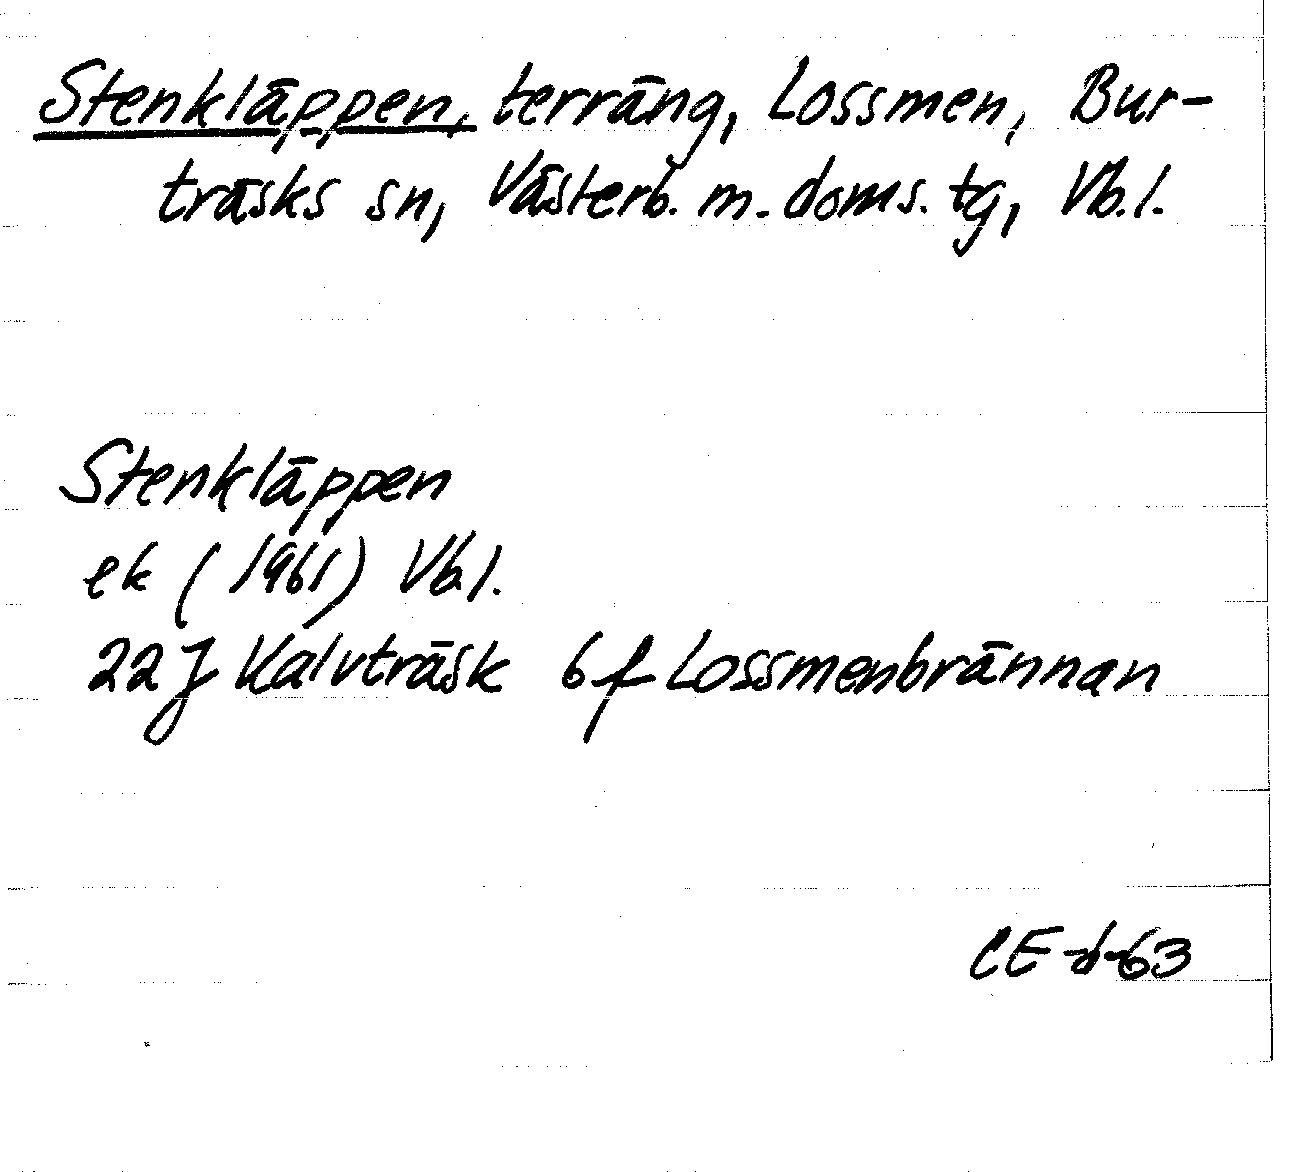 Stenkläppen, terräng, Lossmen, Bur-
träsks sn, Västerb. m. doms. tg, Vb.l.
Stenkläppen
ek (1961) Vb.l.
22J Kalvträsk 6f Lossmenbrännan
CE-d-63